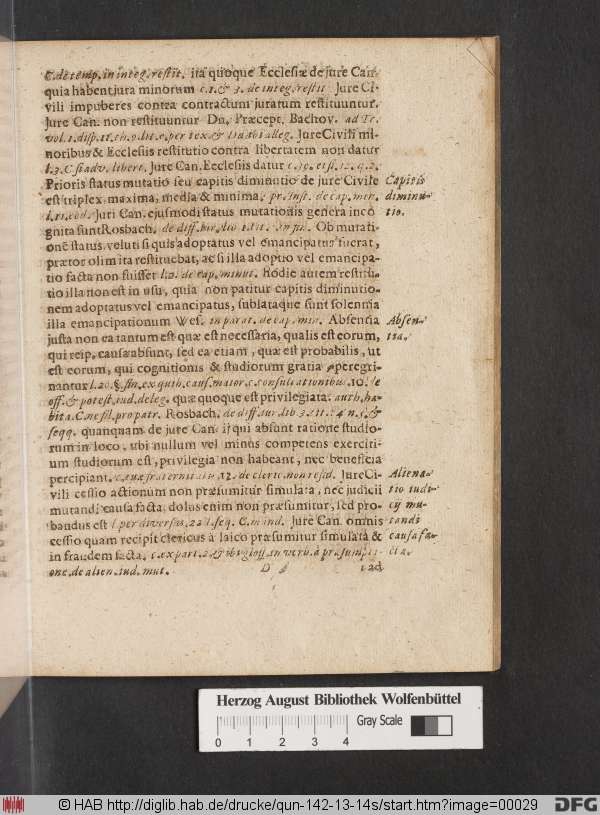 C. de temp. in integ. restit. ita quoque Ecclesiæ de jure Can.
quia habent jura minorum c. 1. & 3. de integ. restit Jure Ci-
vili impuberes contra contractum juratum restituuntur.
Jure Can. non restituuntur Dn. Præcept. Bachov. ad Tr.
vol. 1. disp. 11. th. 9. lit. e. per tex. & Dd ibi alleg. Jure Civili mi-
noribus & Ecclesiis restitutio contra libertatem non datur
l. 3. C si adv. libert. Jure Can. Ecclesiis datur
Prioris status mutatio seu capitis diminutio de jure Civile
est triplex, maxima, media & minima, pr. inst. de cap. min.
l. 11. eod. Juri Can. ejusmodi status mutationis genera inco
gnita sunt Rosbach. de diff. in fin. Ob mutati-
onē status, veluti si quis adoptatus vel emancipatus fuerat,
prætor olim ita restituebat, ac si illa adoptio vel emancipa-
tio facta non fuisset l. 2. de cap. minut. hodie autem restitu-
tio illa non est in usu, quia non patitur capitis diminutio-
nem adoptatus vel emancipatus, sublataque sunt solennia
illa emancipationum Wes. in parat. de cap. min. Absentia
justa non ea tantum est quæ est necessaria, qualis est eorum,
qui reip. causa absunt, sed ea etiam, quæ est probabilis, ut
est eorum, qui cognitionis & studiorum gratia peregri-
nantur l. 20. §. fin. ex quib. caus. major. c. consultationibus. 10. de
off. & potest. iud. deleg. quæ quoque est privilegiata. auth. ha-
bita. C. ne fil. pro patr. Rosbach. de diff. aur. lib 3. tit. 24 n. 5. &
seqq. quanquam de jure Can. ii qui absunt ratione studio-
rum in loco, ubi nullum vel minus competens exerciti-
um studiorum est, privilegia non habeant, nec beneficia
percipiant. c. tuæ fraternitatis 12. de cleric. non resid. Jure Ci-
vili cessio actionum non præsumitur simulata, nec judicii
mutandi causa facta, dolus enim non præsumitur, sed pro-
bandus est l. per diversas. 22 l. seq. C. mand. Jure Can. omnis
cessio quam recipit clericus à laico præsumitur simulata &
in fraudem facta. c. ex part. 2. & ibi gloss. in verb. à præsumpti-
one. de alien. iud. mut.
D
Capitis
diminu-
tio.
Absen-
tia.
Aliena-
tio iudi-
cij mu-
tandi
causa fa-
cta.
Herzog August Bibliothek Wolfenbüttel
Gray Scale
0 1 2 3 4
© HAB http://diglib.hab.de/drucke/qun-142-13-14s/start.htm?image=00029
DFG